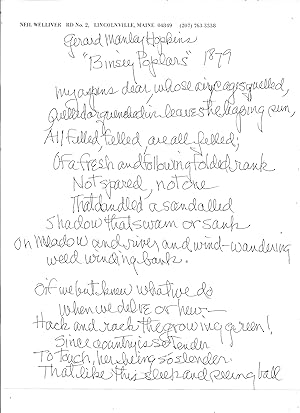 NEIL WELLIVER RD No. 2, LINCOLNVILLE, MAINE 04849 (207) 763 3338
Gerard Manley Hopkins
"Binsey Poplars" 1879
my aspens dear whose airy cages quelled,
Quelled or quenched in leaves the leaping sun,
All felled, felled, are all felled;
Of a fresh and following folded rank
Not spared, not one
That dandled a sandalled
Shadow that swam or sank
On meadow and river and wind-wandering
weed winding bank.
O if we but knew what we do
when we delve or hew—
Hack and rack the growing green!
Since country is so tender
To touch, her being so slender
That like this sleek and seeing ball